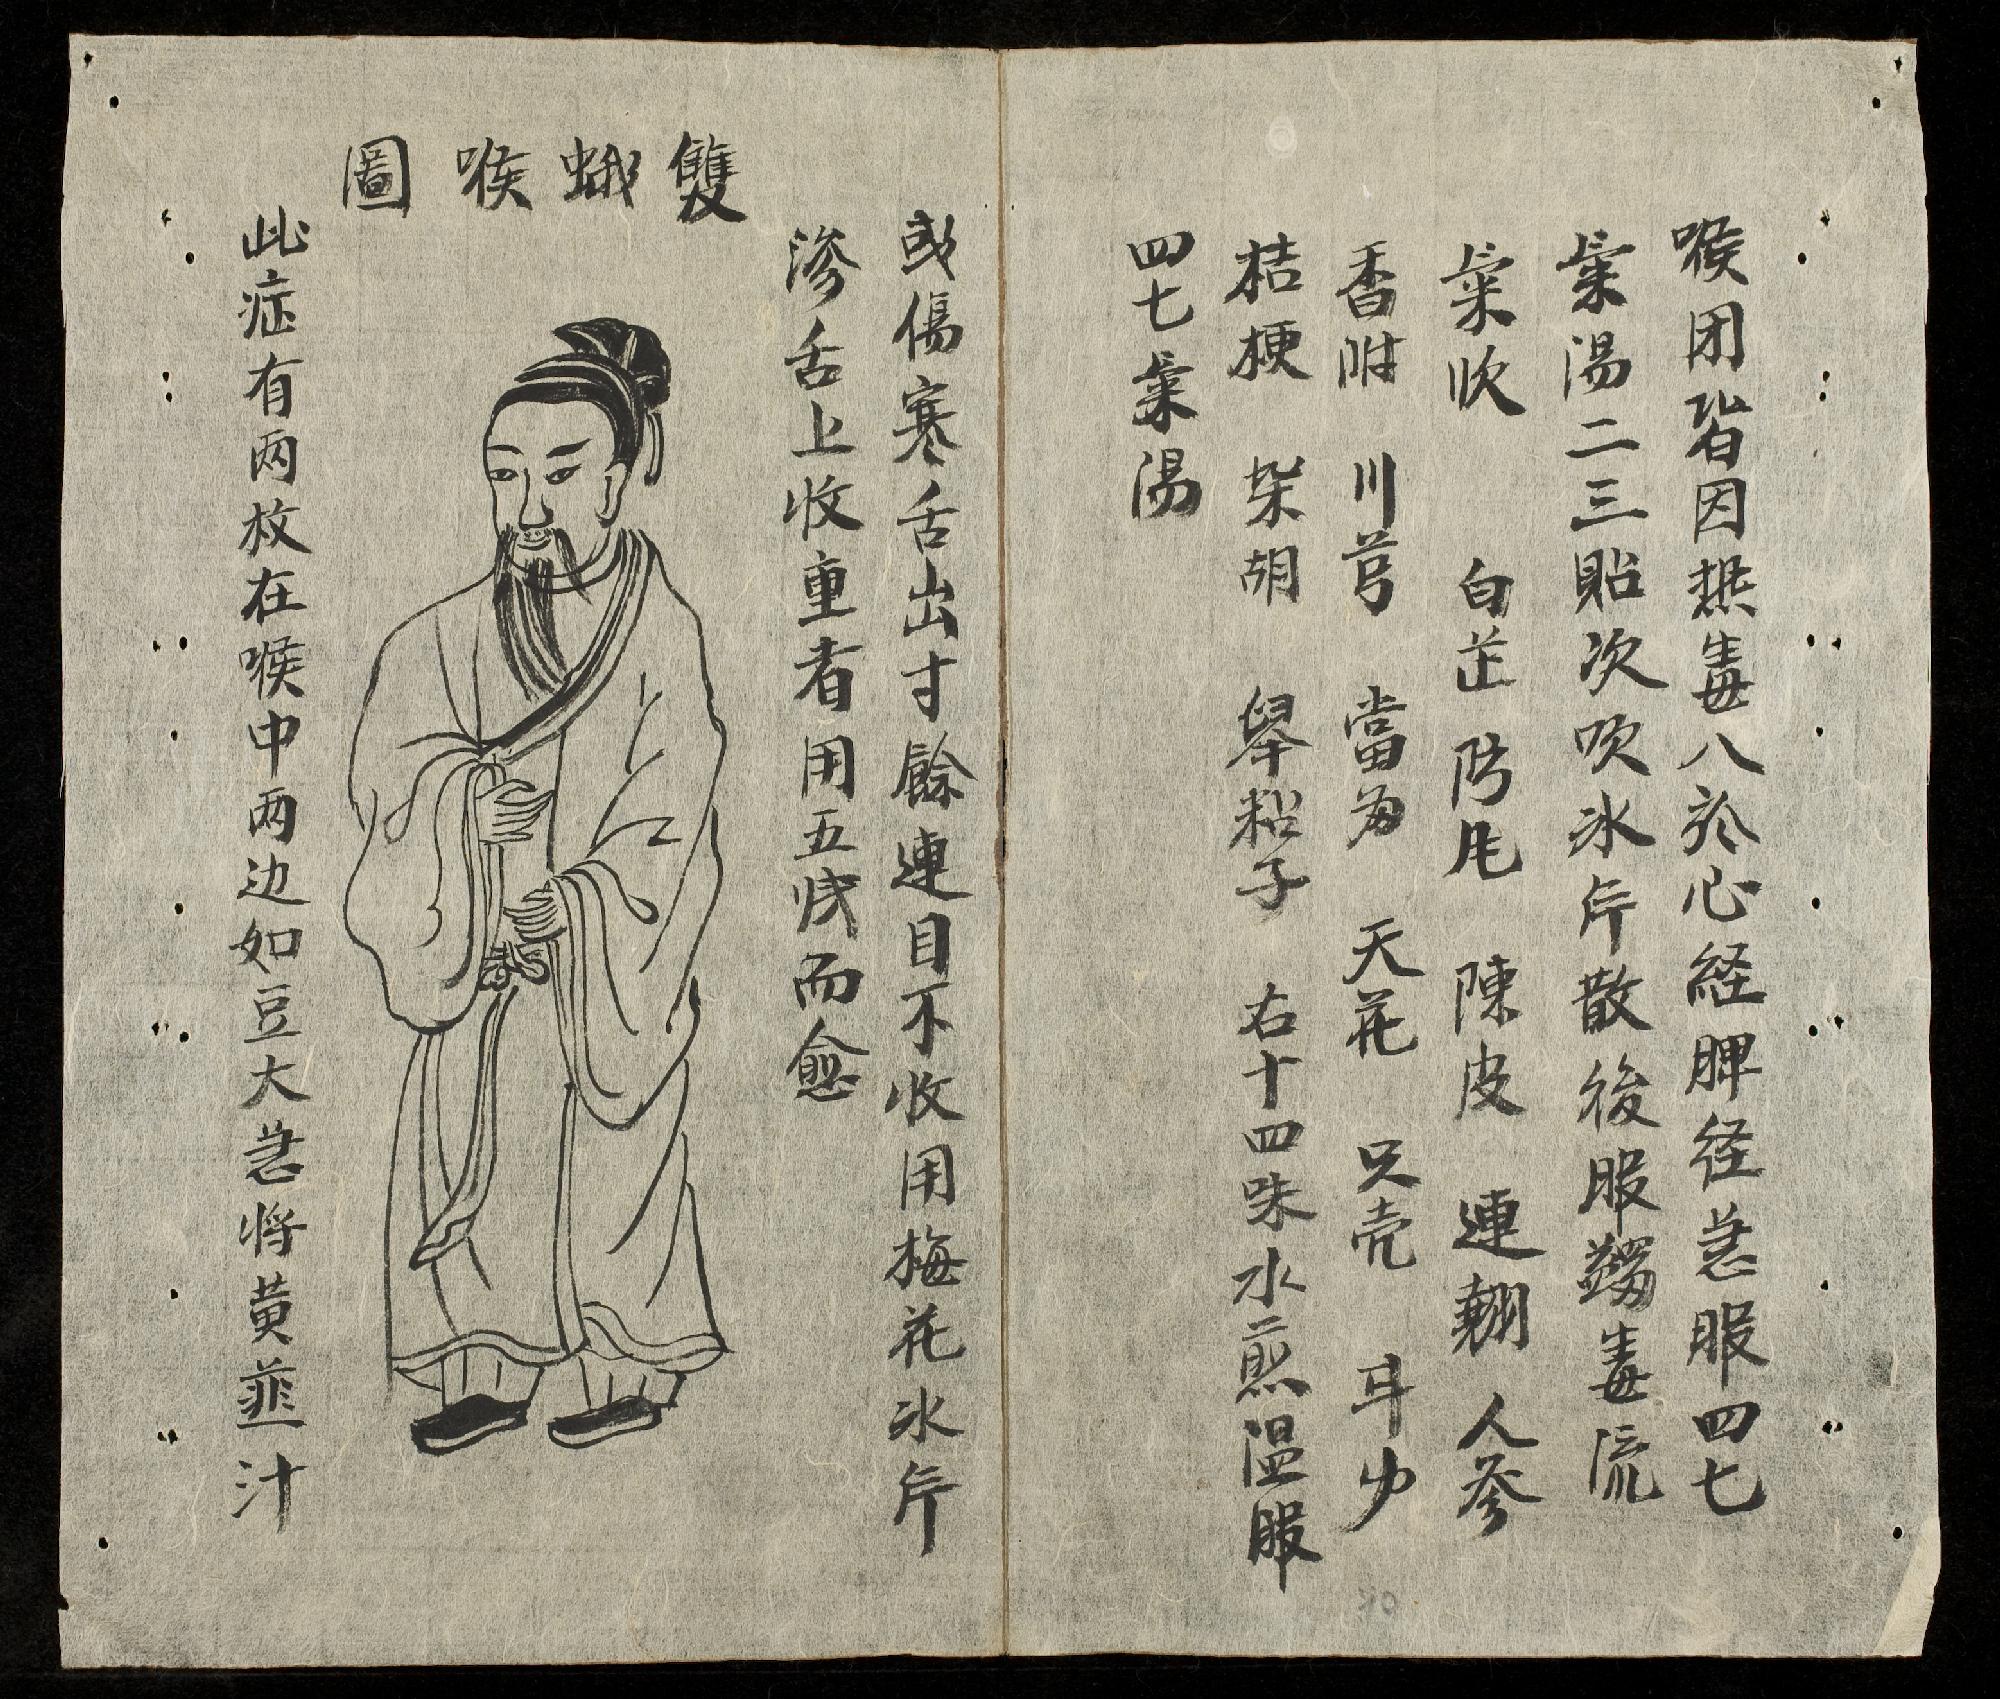 喉闭皆因热毒入於心経脾経急服四七
氣湯二三貼次吹冰片散後服蠲毒流
氣飲　白芷　防风　陳皮　連翹　人參
香附　川芎　當歸　天花　只壳　甘少
桔梗　柴胡　舉粘子　右十四味水煎温服
四七氣湯
或傷寒舌出寸餘連目不收用梅花冰片
渗舌上收重者用五片而愈
雙蛾喉圖
此症有两枚在喉中两边如豆大急将黄韮汁